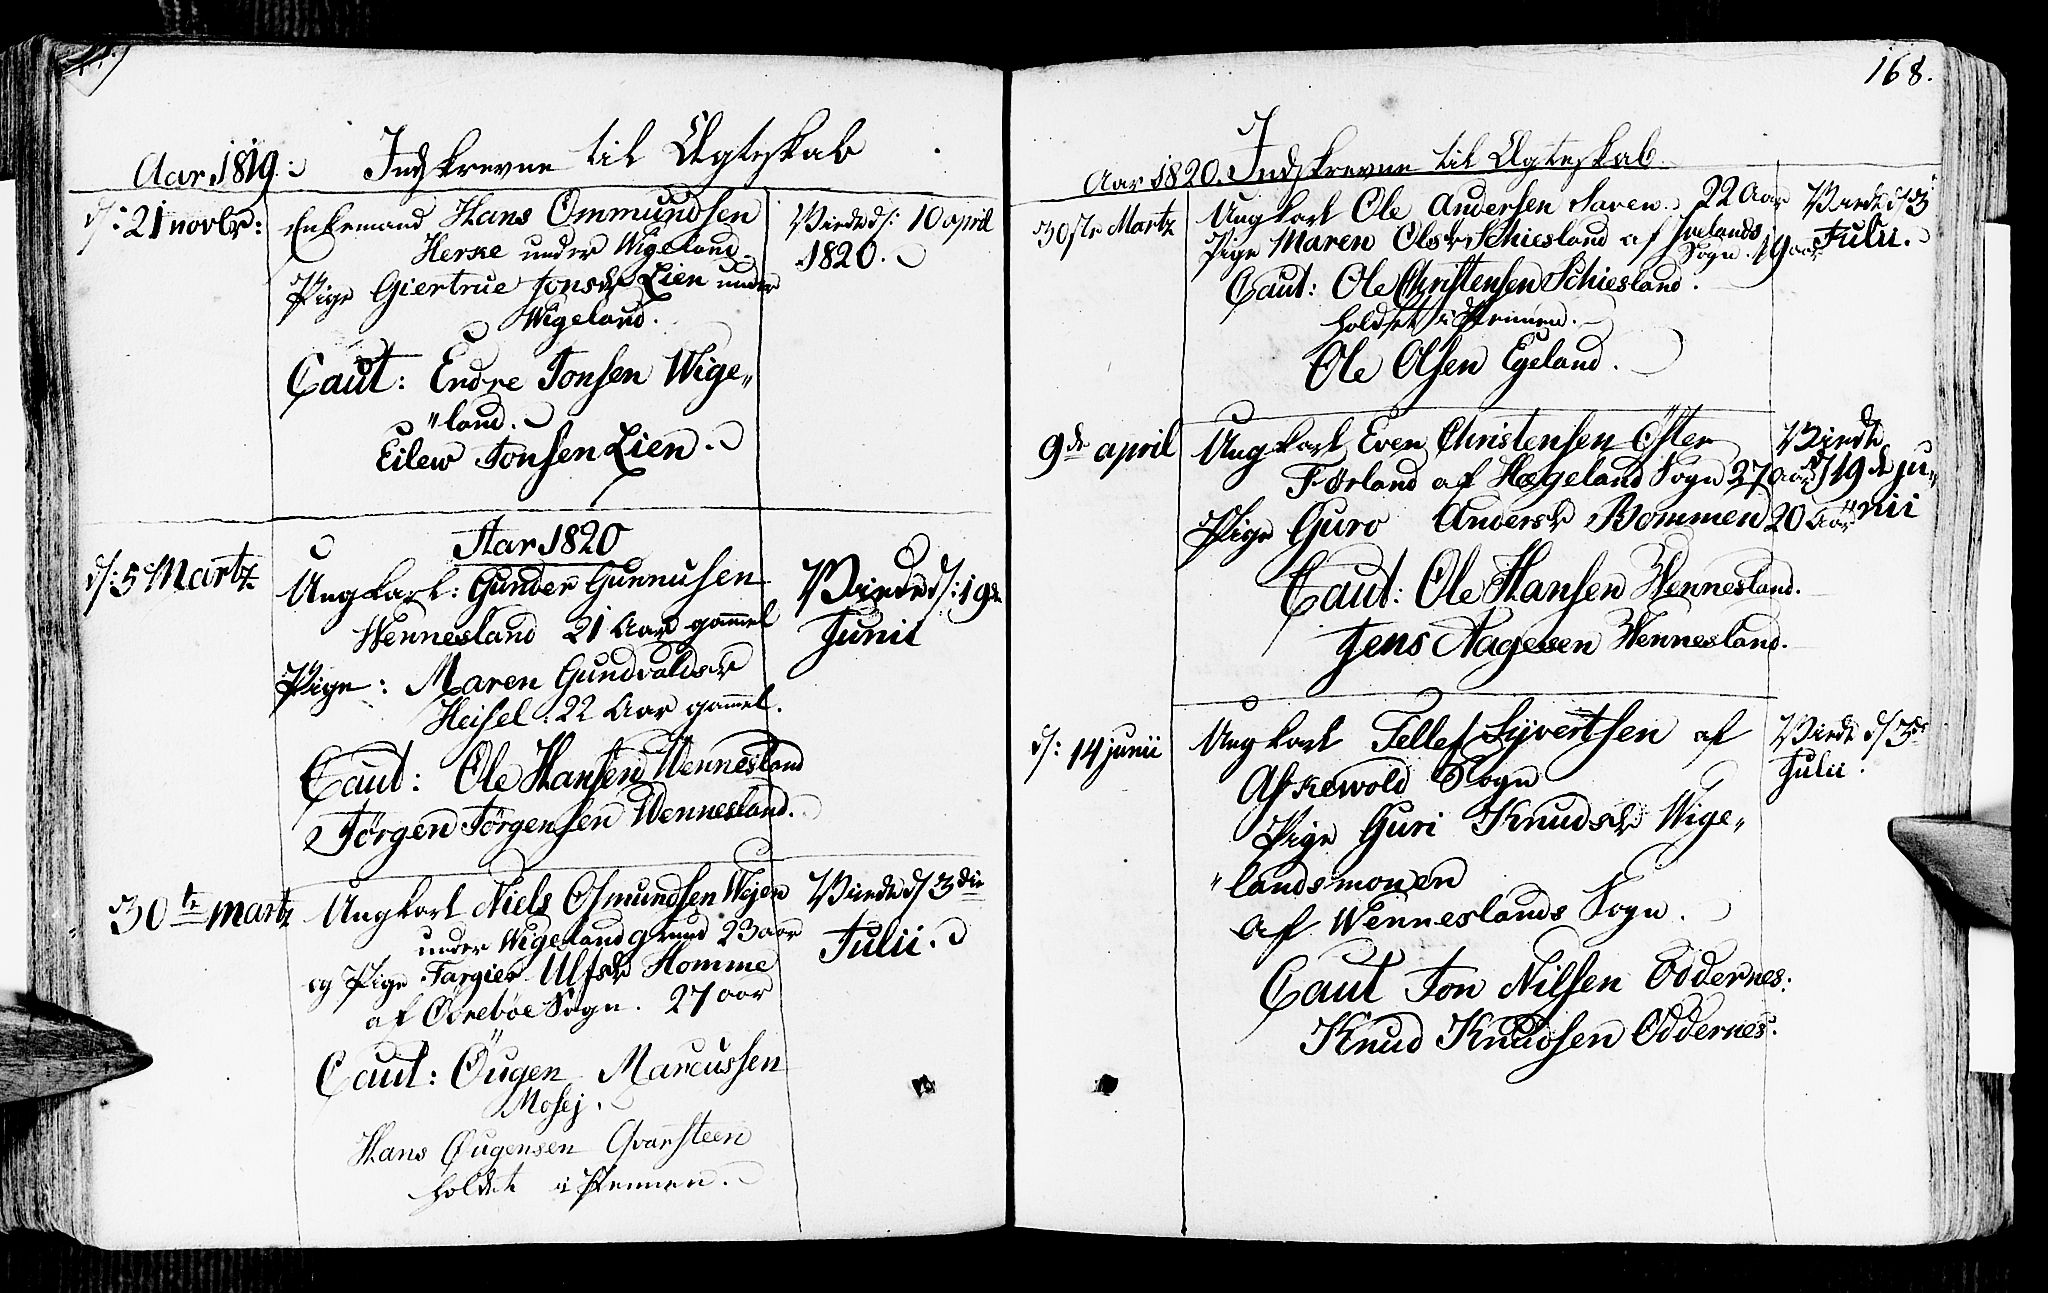 Aar 1819. Indskrevne til Ægteskab
d: 21 novbr: Enkemand Hans Ommundsen
Herke under Wigeland
Pige Giertrue Jonsdr Lien under
Wigeland.
Caut: Endre Jonsen Wige„
„land.
Eilew Jonsen Lien.
Viede d: 10 april
1820.
Aar 1820
d: 5 Martz Ungkarl: Gunder Gunnusen
Wennesland 21 Aar gammel
Pige: Maren Gundvaldsdr
Heisel. 22 Aar gammel.
Caut: Ole Hansen Wennesland
Jörgen Jörgensen Wennesland.
Viede d: 19de
Junii
30te martz Ungkarl Niels Osmundsen Wejen
under Wigeland grund 23 aar
og Pige Targier Ulfsdr Homme
af Övreböe Sogn. 27 aar
Caut: Öugen Marcussen
Mosej.
Hans Øugensen Qvarsteen
holdet i Pennen.
Viede d 3die
Julii.
168.
Aar 1820. Indskrevne til Ægteskab.
30ste Martz Ungkarl Ole Andersen 22 Aar
Pige Maren Olsdr Schiesland af Joelands
Sogn. 19 aar
Caut: Ole Christensen Schiesland.
holdet i Pennen.
Ole Olsen Egeland.
Viede d 3
Julii.
9de april Ungkarl Even Christensen Öster
Förland af Hægeland Sogn 27 aar
Pige Guro Andersdr Bommen 20 Aar
Caut: Ole Hansen Wennesland.
Jens Aagesen Wennesland.
Viede
d 19de ju„
„nii
d: 14 junii Ungkarl Tellef Syvertsen af
Askewold Sogn
Pige Guri Knudsdr Wige„
„landsmonen
af Wenneslands Sogn.
Caut Jon Nilsen Oddernes:
Knud Knudsen Oddernes.
Viede d 3de
Julii.